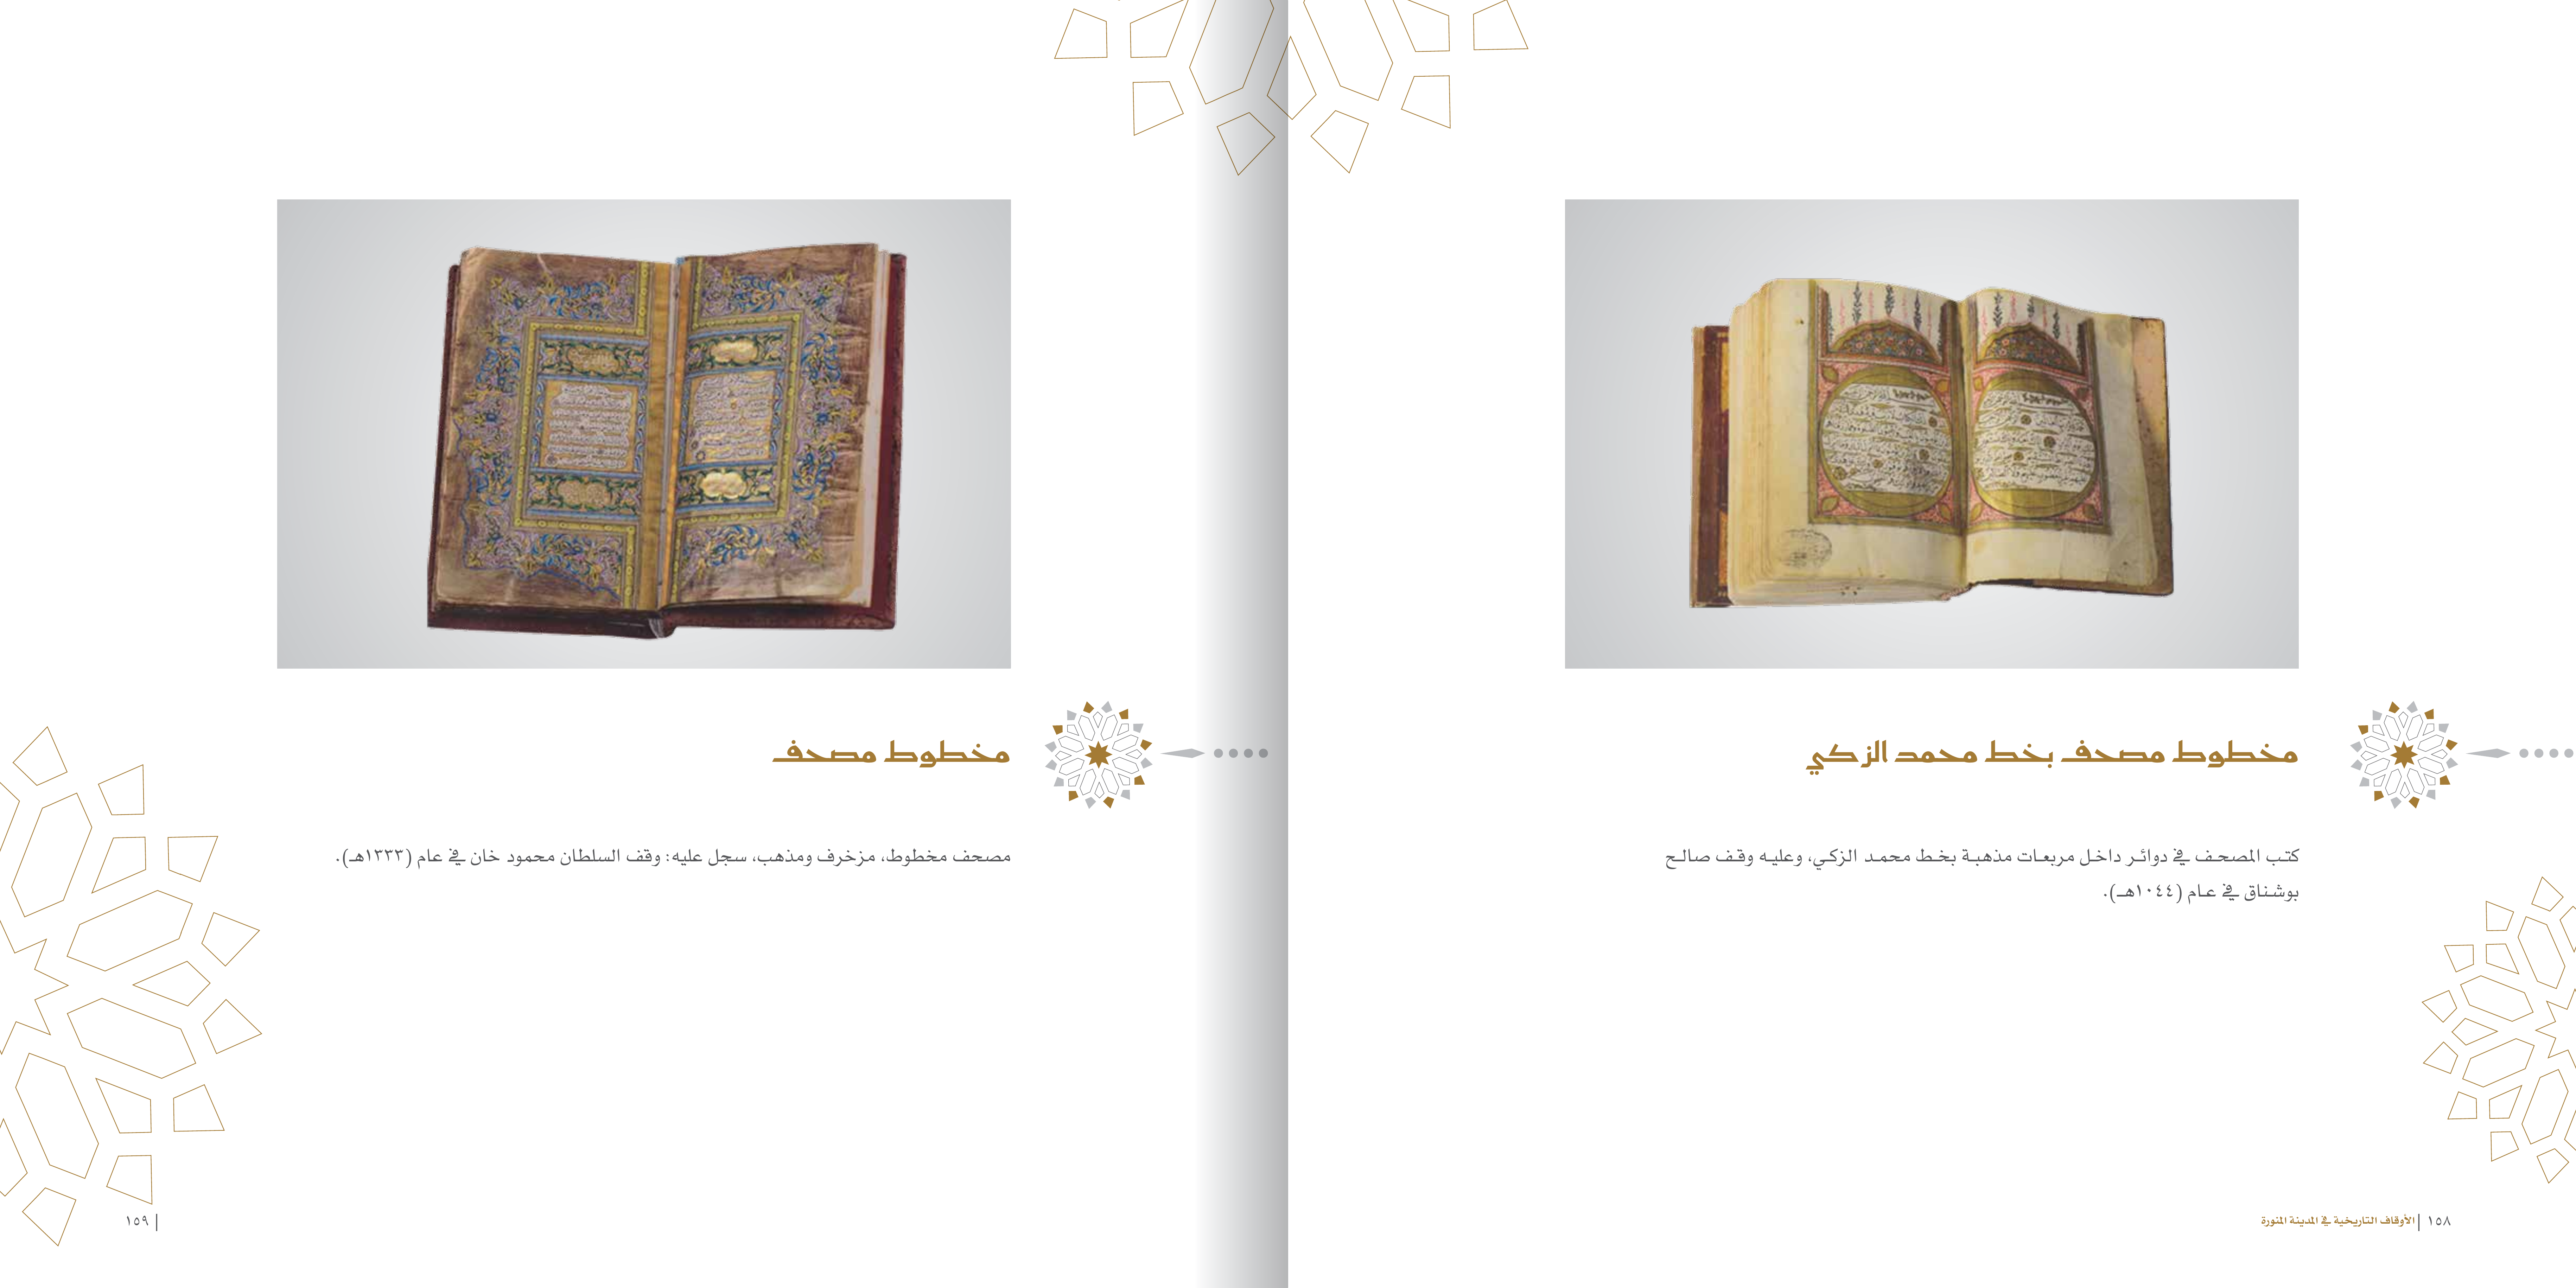 مخطوط مصحف بخط محمد الزكي
كتب المصحف في دوائر داخل مربعات مذهبة بخط محمد الزكي، وعليه وقف صالح
بوشناق في عام (١٠٤٤هـ).
١٥٨ | الأوقاف التاريخية في المدينة المنورة
مخطوط مصحف
مصحف مخطوط، مزخرف ومذهب، سجل عليه: وقف السلطان محمود خان في عام (١٣٣٣هـ).
| ١٥٩